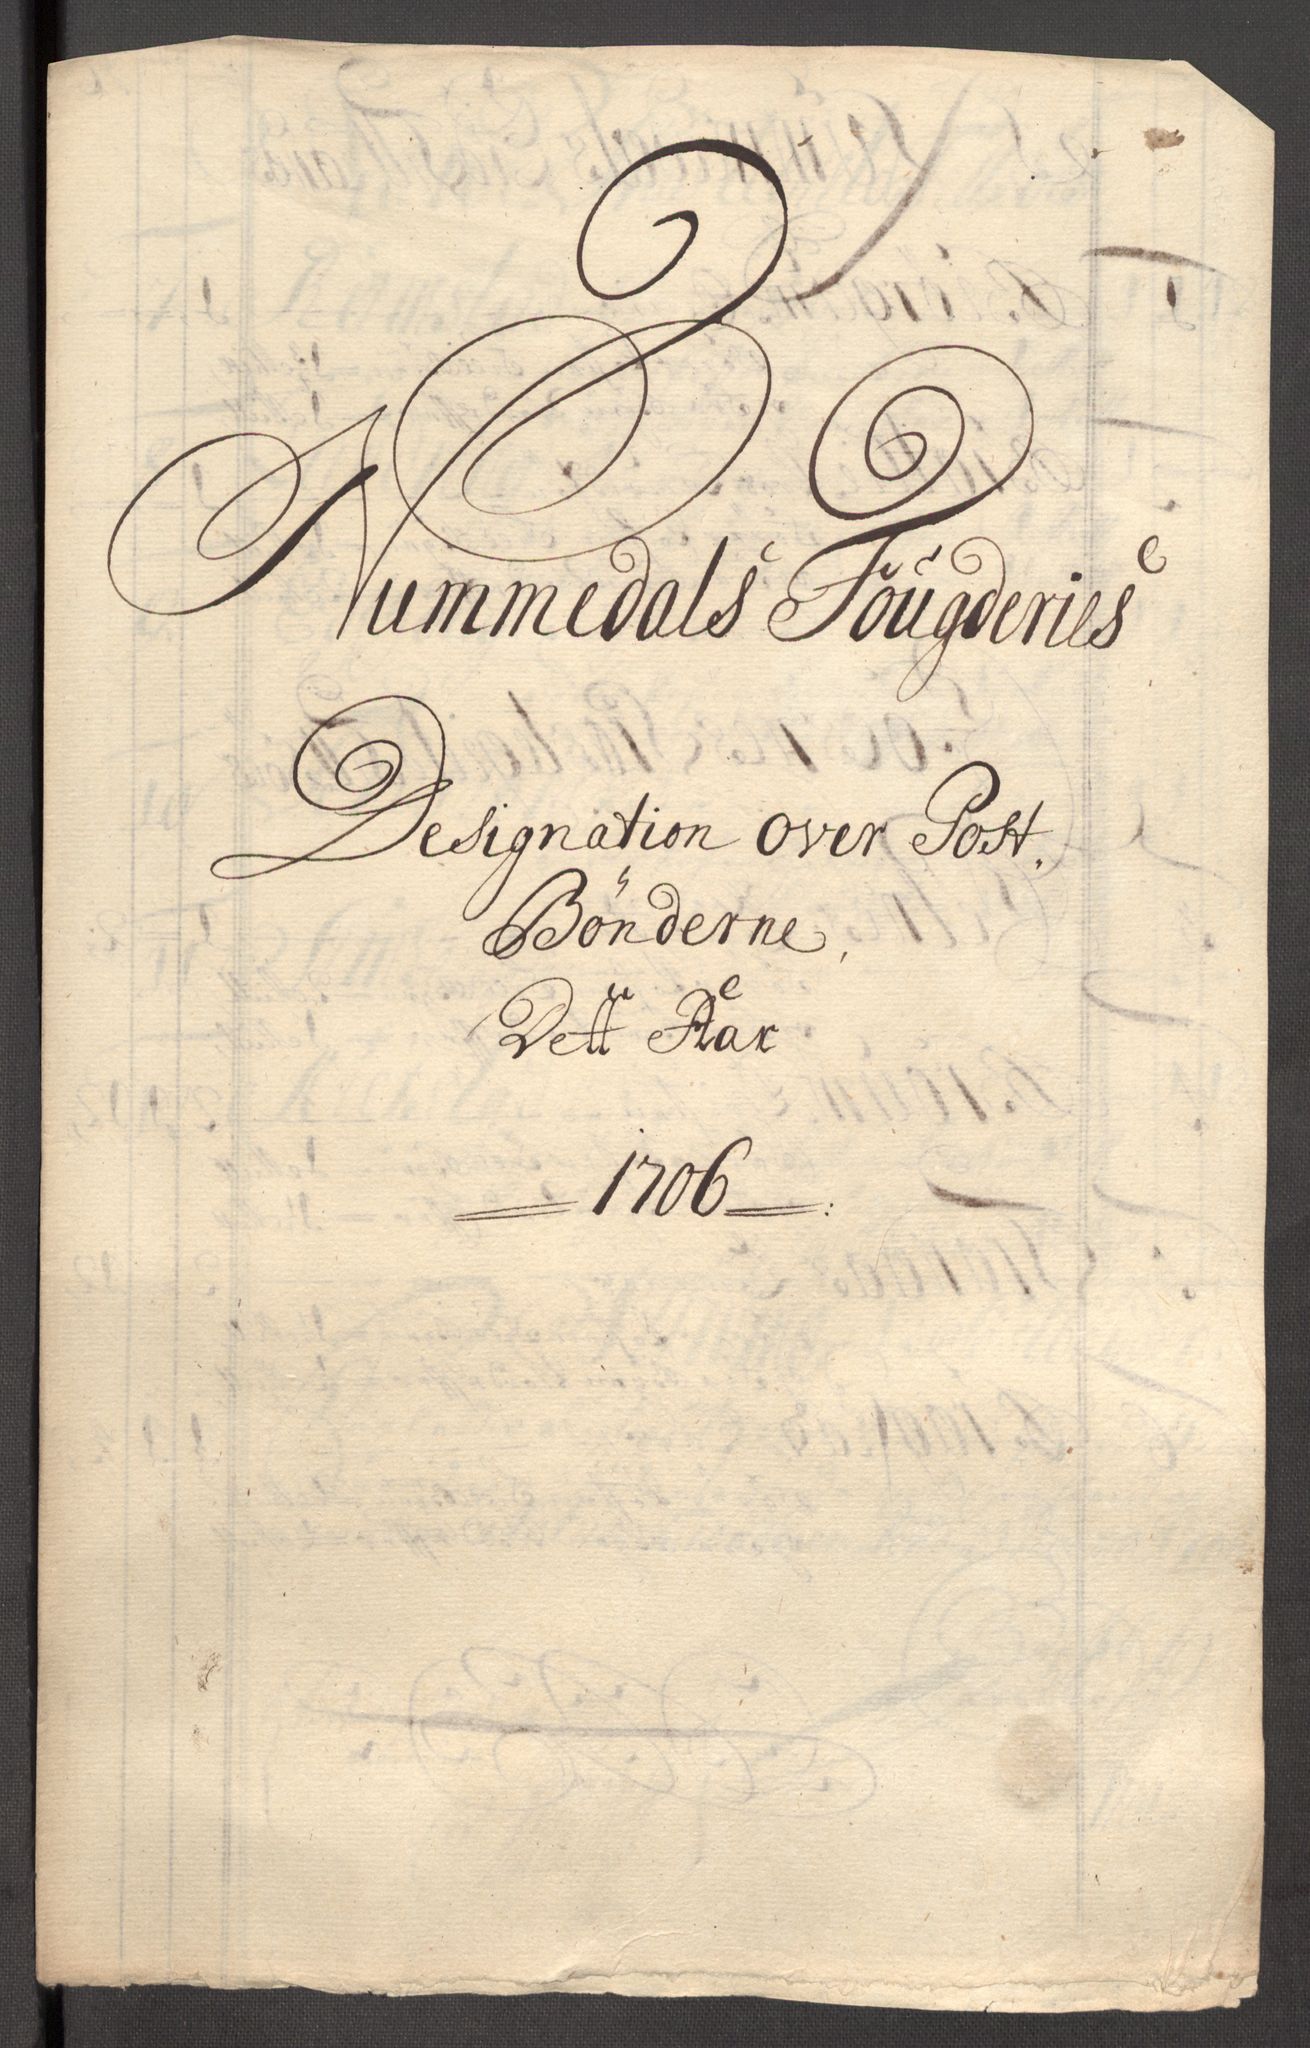 Nummedals Fougderies
Designation over Post.
Bönderne,
Dett Aar
1706